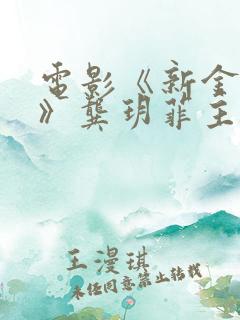 電影《新金
》龔玥菲王
王漫琪
未经同意禁止转载